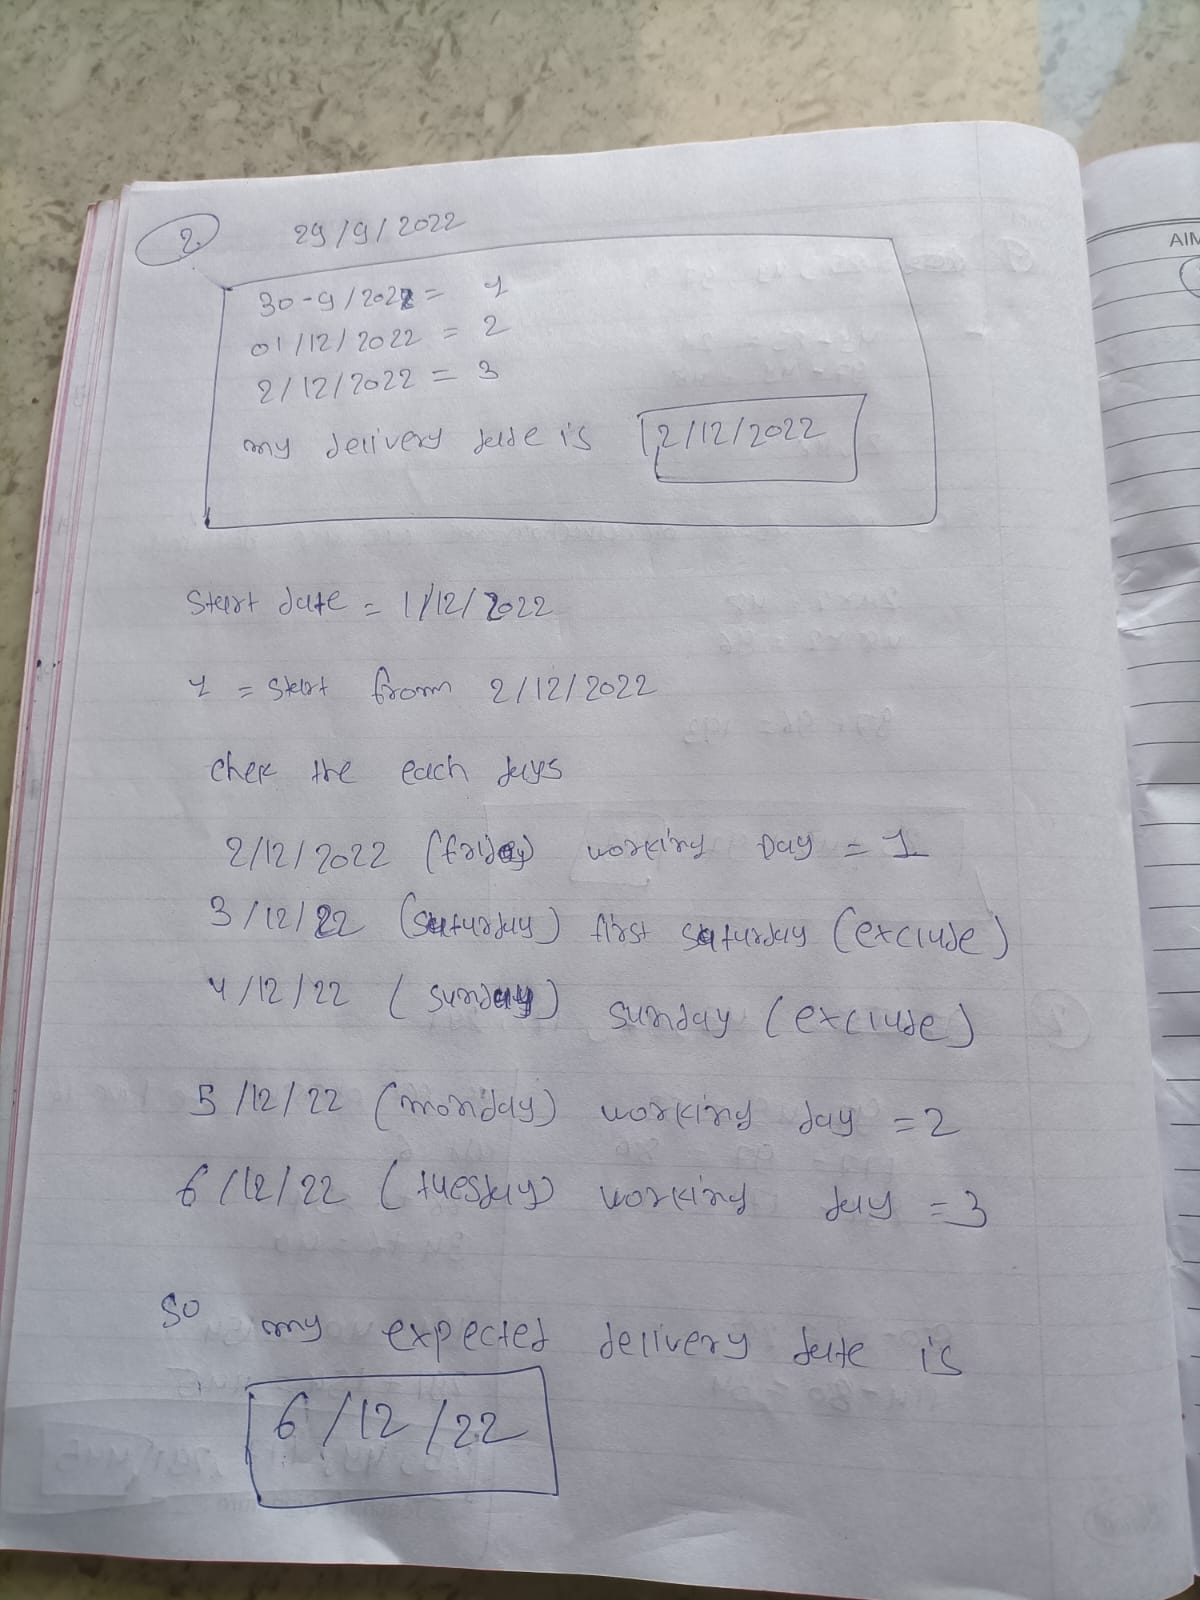 2.
29/9/2022
30-9/2022 = 1
01/12/2022 = 2
2/12/2022 = 3
my delivery date is 2/12/2022
AIM
Start date = 1/12/2022
1 = start from 2/12/2022
chek the each days
2/12/2022 (friday) working Day = 1
3/12/22 (saturday) first saturday (exclude)
4/12/22 (sunday) sunday (exclude)
5/12/22 (monday) working day = 2
6/12/22 (tuesday) working day = 3
so my expected delivery date is
6/12/22